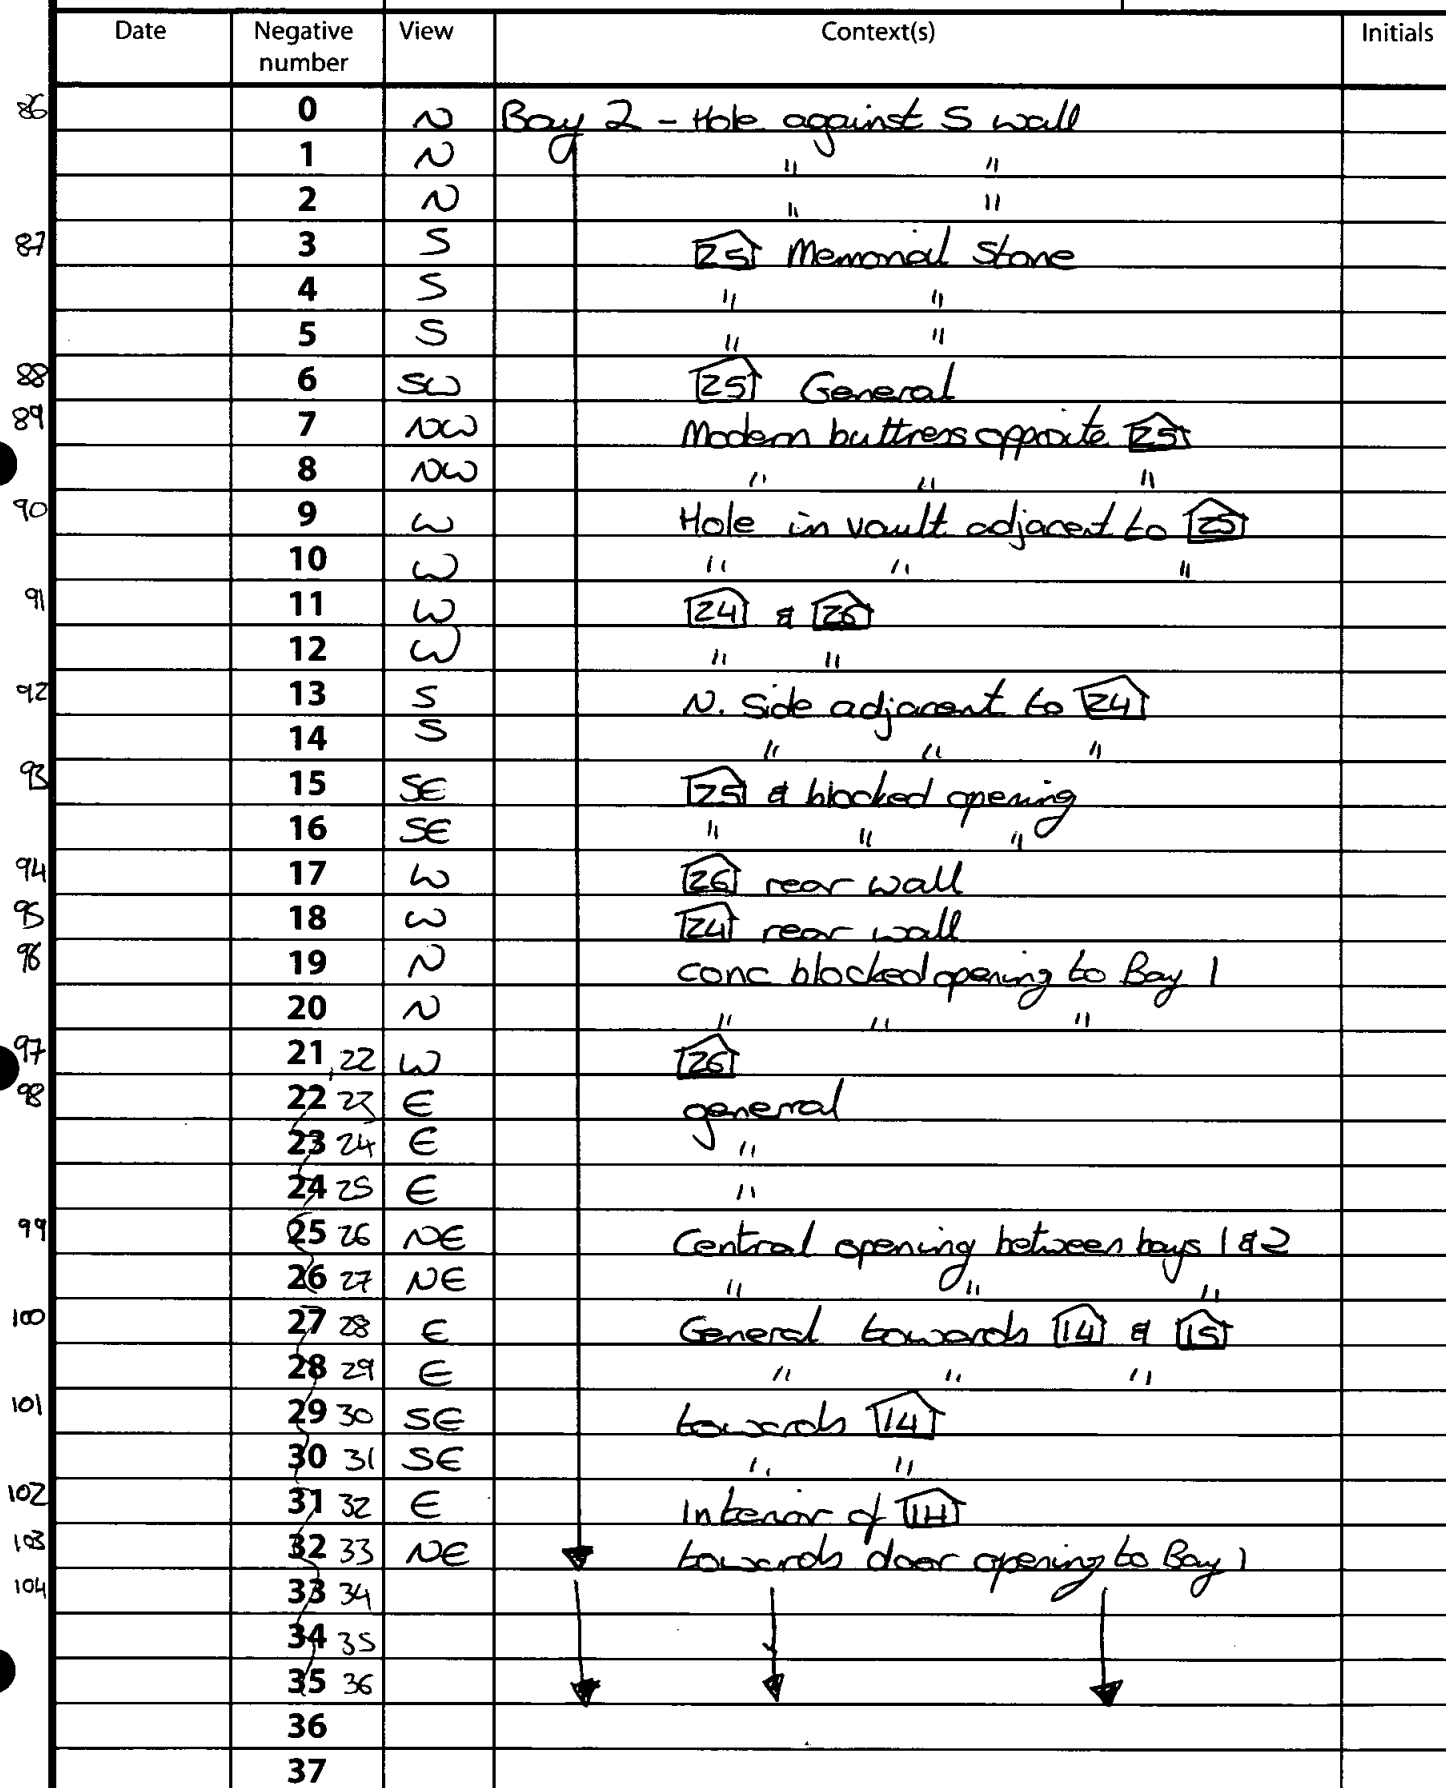 Date Negative number View Context(s) Initials
86 0 N Bay 2 - Hole against S wall
1 N " "
2 N " "
87 3 S 25 Memorial Stone
4 S " "
5 S " "
88 6 SW 25 General
89 7 NW Modern buttress opposite 25
8 NW " " "
90 9 W Hole in vault adjacent to 25
10 W " " "
91 11 W 24 & 26
12 W " "
92 13 S N. Side adjacent to 24
14 S " " "
93 15 SE 25 & blocked opening
16 SE " " "
94 17 W 26 rear wall
95 18 W 24 rear wall
96 19 N conc blocked opening to Bay 1
20 N " " "
97 21, 22 W 26
98 22 23 E general
23 24 E "
24 25 E "
99 25 26 NE Central opening between bays 1 & 2
26 27 NE " " "
100 27 28 E General towards 14 & 15
28 29 E " " "
101 29 30 SE towards 14
30 31 SE " "
102 31 32 E Interior of 14
103 32 33 NE towards door opening to Bay 1
104 33 34
34 35
35 36
36
37